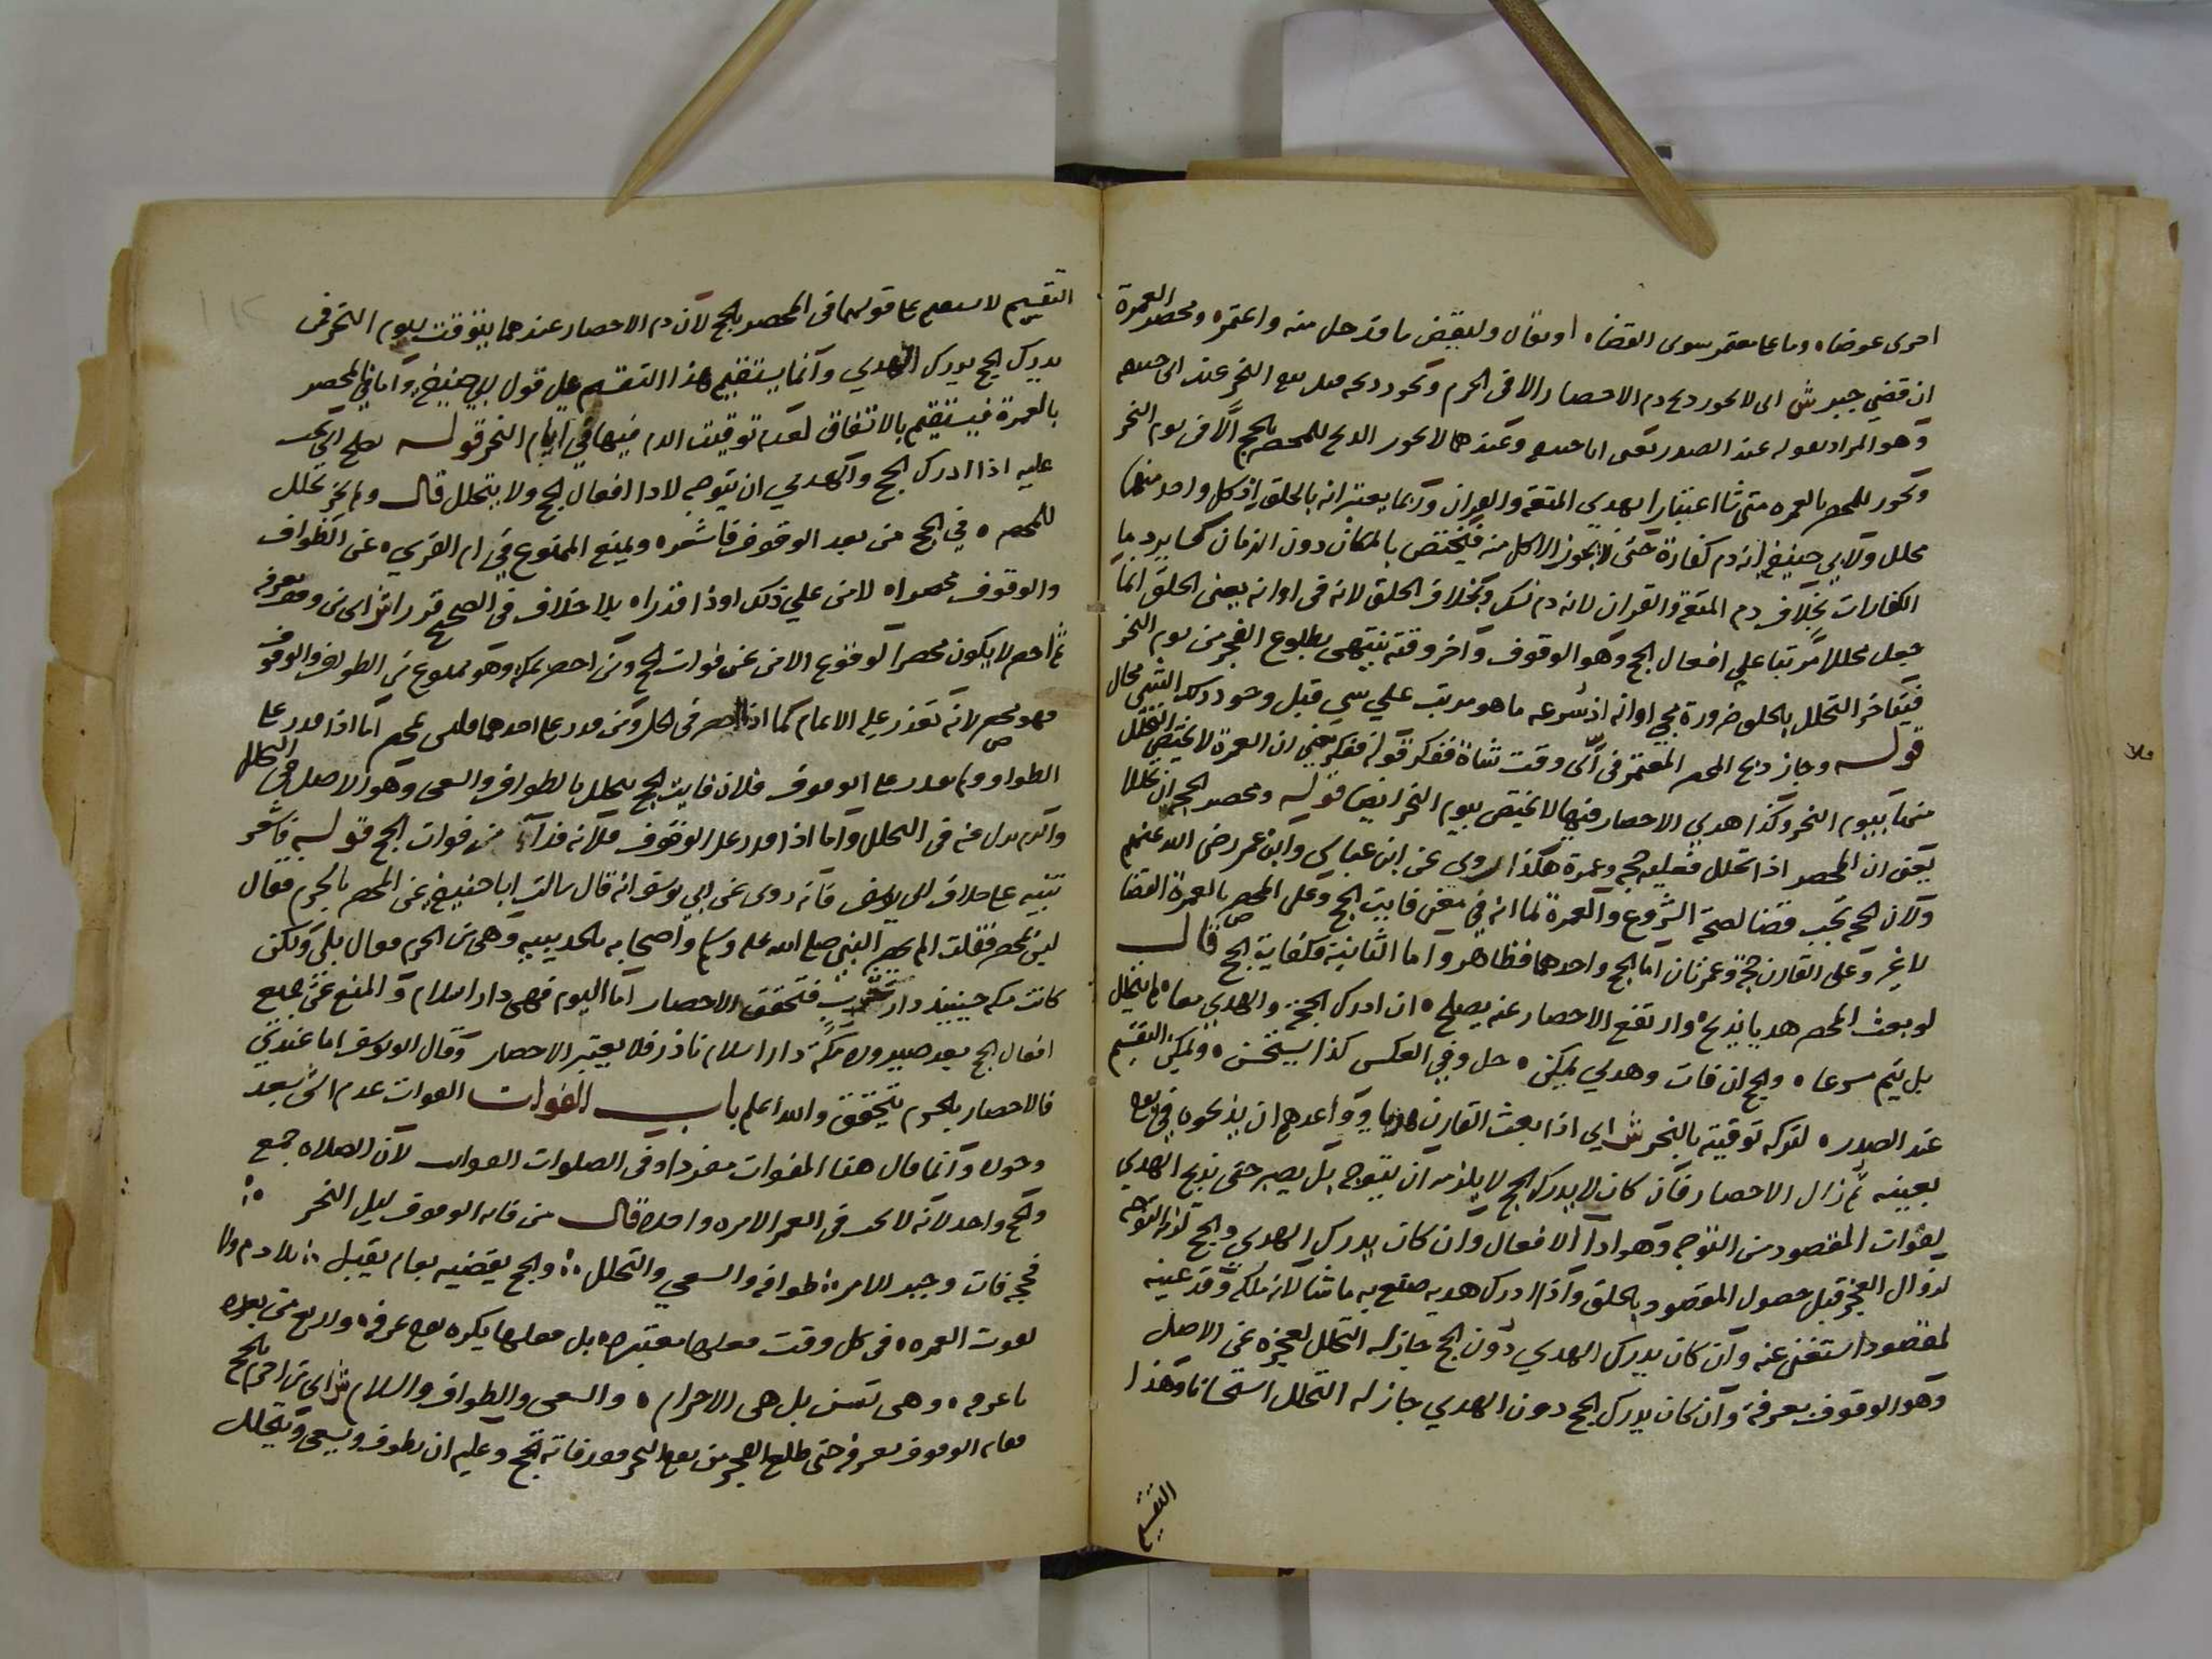 احرى عوضاه وما عا معتمر سوى القضاه او بقال وليقض ما قد حل منه واعتمره ومحصر العمرة
ان قضي جبر ش اى لا يجوز ذبح دم الاحصار الا فى الحرم ويجوز ذبحه قبل يوم النحر عند ابى حنيفه
وهو المراد بقوله عند الصدر يعنى ابا حنيفه وعندهما لا يجوز الذبح للمحصر بالحج الا فى يوم النحر
ويجوز للمحصر بالعمره متى شا اعتبارا بهدي المتعة والقران وربما يعتبرانه بالحلق اذ كل واحد منهما
محلل ولابي حنيفة انه دم كفارة حتى لا يجوز الاكل منه فيختص بالمكان دون الزمان كسائر دما
الكفارات بخلاف دم المتعة والقران لانه دم نسك وبخلاف الحلق لانه فى اوانه يعنى الحلق انما
جعل محللا مرتبا على افعال الحج وهو الوقوف واخر وقته ينتهى بطلوع الفجر من يوم النحر
فيتاخر التحلل بالحلق ضرورة مجي اوانه اذ شرعه ما هو مرتب على شي قبل وجود ذلك الشي محال
قوله وجاز ذبح المحصر المعتمر فى اى وقت شاة ففكر قوله ففكر يعنى ان العمرة لا يختص التحلل
منها بيوم النحر وكذا هدي الاحصار فيها لا يختص بيوم النحر ايضا قوله ومحصر الحج ان تحللا
يعنى ان المحصر اذا تحلل فعليه حجه وعمرة هكذا روى عن ابن عباس وابن عمر رضى الله عنهم
ولان الحجه تجب قضا لصحة الشروع والعمرة لما انه فى معنى فايت الحج وعلى المحصر بالعمرة القضا
لا غير وعلى القارن حجة وعمرتان اما الحج واحدهما فظاهر واما الثانية فلفايتة الحج قال
لو بعث المحصر هديا يذبح ه وارتفع الاحصار عنه يصلح ه ان ادرك الحجة والهدي معا ه لم يتحلل
بل يتم سرعا ه والحج ان فات وهدي يمكن ه حل وفي العكس كذا يستحسن ه ولكن التقسيم
عند الصدر ه لتركه توقيته بالنحر ش اى اذا بعث القارن هديا وواعدهم ان يذبحوه فى يوم
بعينه ثم زال الاحصار فان كان لا يدرك الحج لا يلزمه ان يتوجه بل يصبر حتى يذبح الهدي
لفوات المقصود من التوجه وهو ادا الافعال وان كان يدرك الهدي والحج لزمه التوجه
لزوال العجز قبل حصول المقصود بالحلق واذا ادرك هديه صنع به ما شا لانه ملكه وقد عينه
لمقصود استغنى عنه وان كان يدرك الهدي دون الحج جاز له التحلل لعجزه عن الاصل
وهو الوقوف بعرفة وان كان يدرك الحج دون الهدي جاز له التحلل استحسانا وهذا
التقسيم
التقسيم لا يستقيم على قولهما فى المحصر بالحج لان دم الاحصار عندهما يتوقت بيوم النحر فمن
يدرك الحج يدرك الهدي وانما يستقيم هذا التقسيم على قول ابي حنيفة واما في المحصر
بالعمرة فيستقيم بالاتفاق لعدم توقيت الدم فيها في ايام النحر قوله يصلح اى يجب
عليه اذا ادرك الحج والهدي ان يتوجه لادا افعال الحج ولا يتحلل قال ولم يجز تحلل
للمحصر ه في الحج من بعد الوقوف فاشعره ويمنع الممنوع في ام القري ه عن الطواف
والوقوف محصرا ه لا من على ذلك او ذا قدرا ه بلا خلاف فى الصحيح قرر ا ش اى من وقف بعرفه
ثم احصر لا يكون محصرا لوقوع الامن عن فوات الحج ومن احصر بمكه وهو ممنوع عن الطواف والوقوف
فهو محصر لانه تعذر عليه الاتمام كما اذا احصر فى الحل ومن قدر على احدهما فليس بمحصر اما اذا قدر على
الطواف ولم يقدر على الوقوف فلان فايت الحج يتحلل بالطواف والسعى وهو الاصل فى التحلل
والدم بدل عنه فى التحلل واما اذا قدر على الوقوف فلانه قد امن من فوات الحج قوله فاشعر
تنبيه على خلاف ابى يوسف فانه روى عن ابي يوسف انه قال سالت ابا حنيفة عن المحصر بالحرم فقال
ليس بمحصر فقلت الم يحصر النبى صلى الله عليه وسلم واصحابه بالحديبيه وهى من الحرم فقال بلى ولكن
كانت مكه حينيذ دار حرب فتحقق الاحصار اما اليوم فهى دار اسلام والمنع عن جميع
افعال الحج بعد صيرورة مكة دار اسلام نادر فلا يعتبر الاحصار وقال ابو يوسف اما عندي
فالاحصار بالحرم يتحقق والله اعلم باب الفوات الفوات عدم الشي بعد
وجوده وانما قال هنا الفوات مفردا وفى الصلوات الفوايت لان الصلاه جمع
والحج واحد لانه لا يجب فى العمر الا مره واحدة قال من فاته الوقوف ليل النحر
فحجه فات وجبر الامر طوافه والسعي والتحلل والحج يقضيه بعام يقبل بلا دم ولا
تفوت العمره ه فى كل وقت فعلها معتبره ه بل فعلها يكره يوم عرفه ه والاربع من بعده
يا عرفه ه وهى تسن بل هى الاحرام ه والسعى والطواف والسلام ش اى من احرم بالحج
ففاته الوقوف بعرفه حتى طلع الفجر من يوم النحر فقد فاته الحج وعليه ان يطوف ويسعى ويتحلل